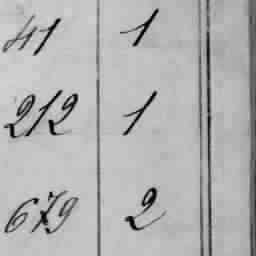 41 1
212 1
679 2